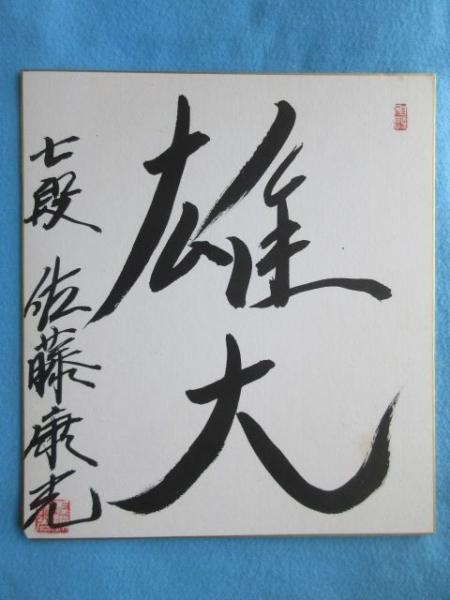 雄大
七段 佐藤康光